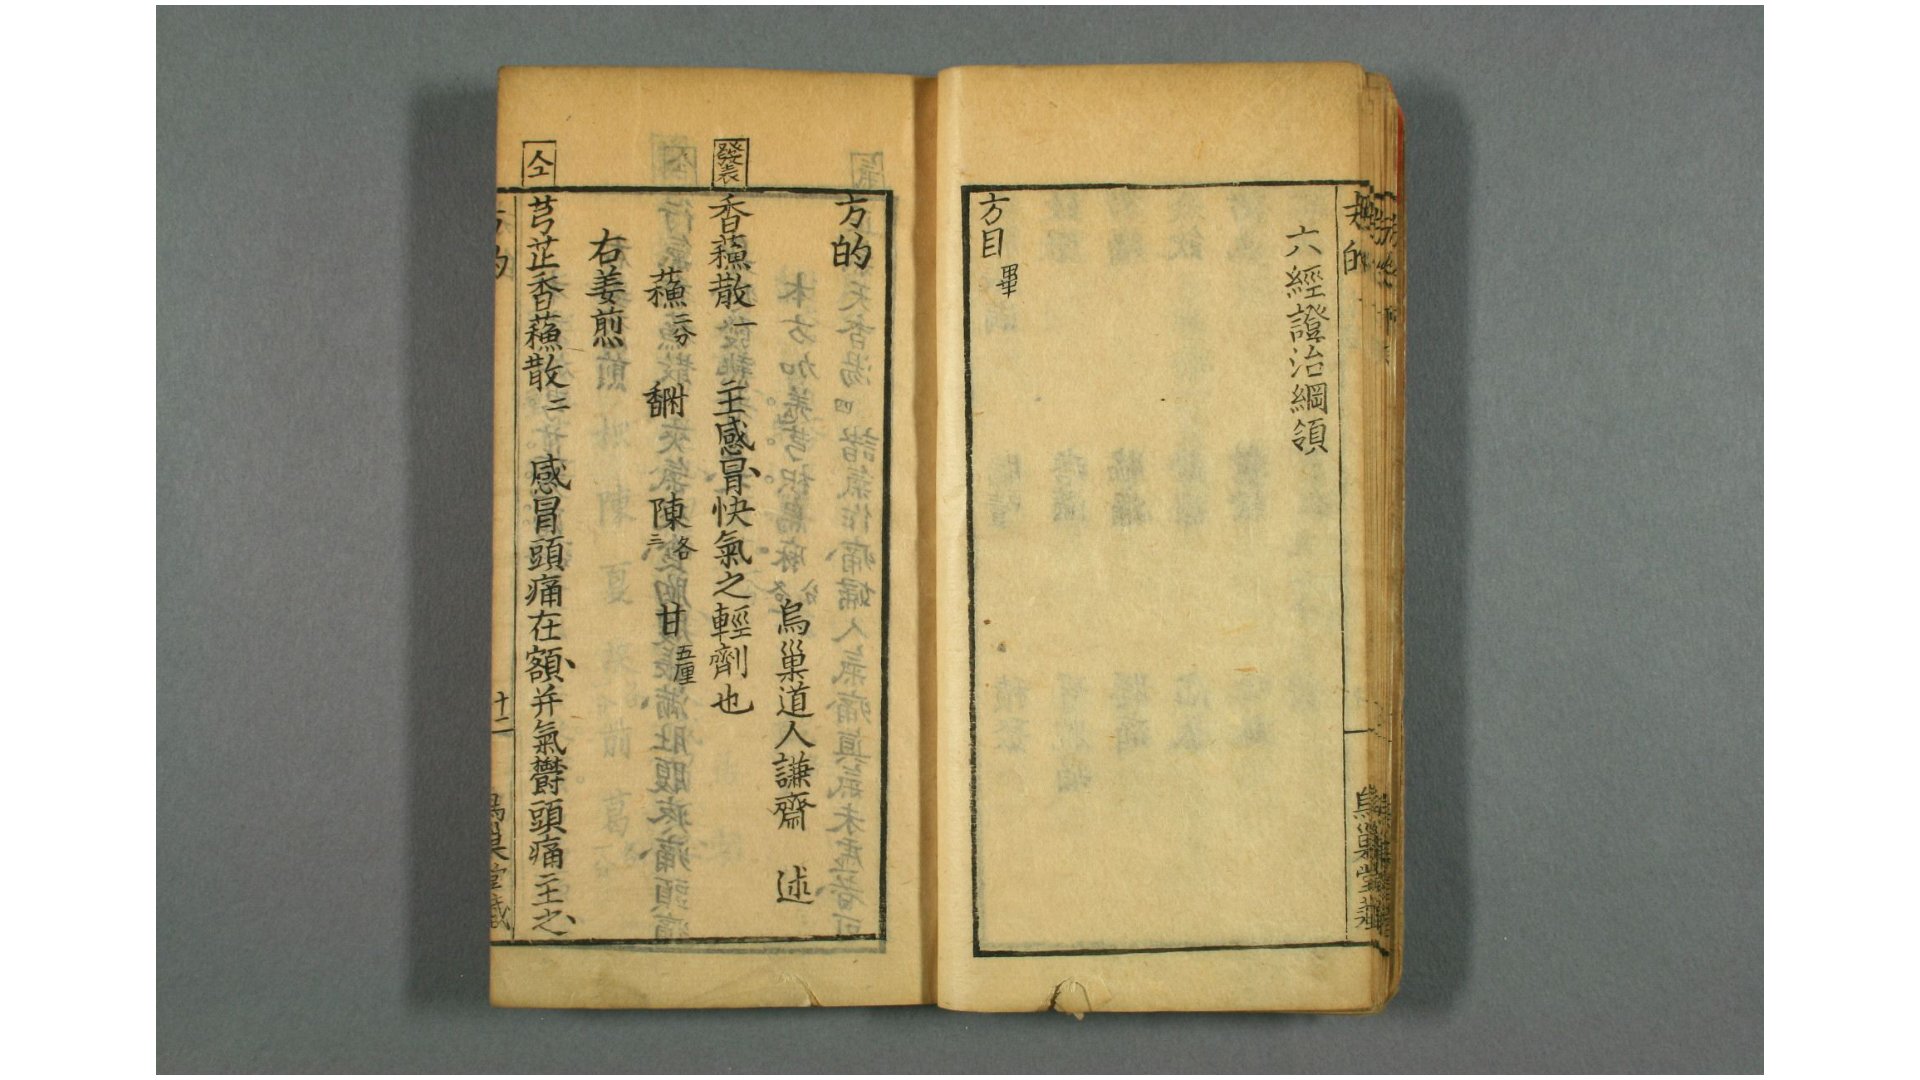 六經證治綱領
方目 畢
方的
烏巢道人謙齋 述
發表
香蘓散一 主感冒快氣之輕劑也
蘓二分 香附 陳各三 甘五厘
右姜煎
仝
芎芷香蘓散二 感冒頭痛在額并氣欝頭痛主之
十二